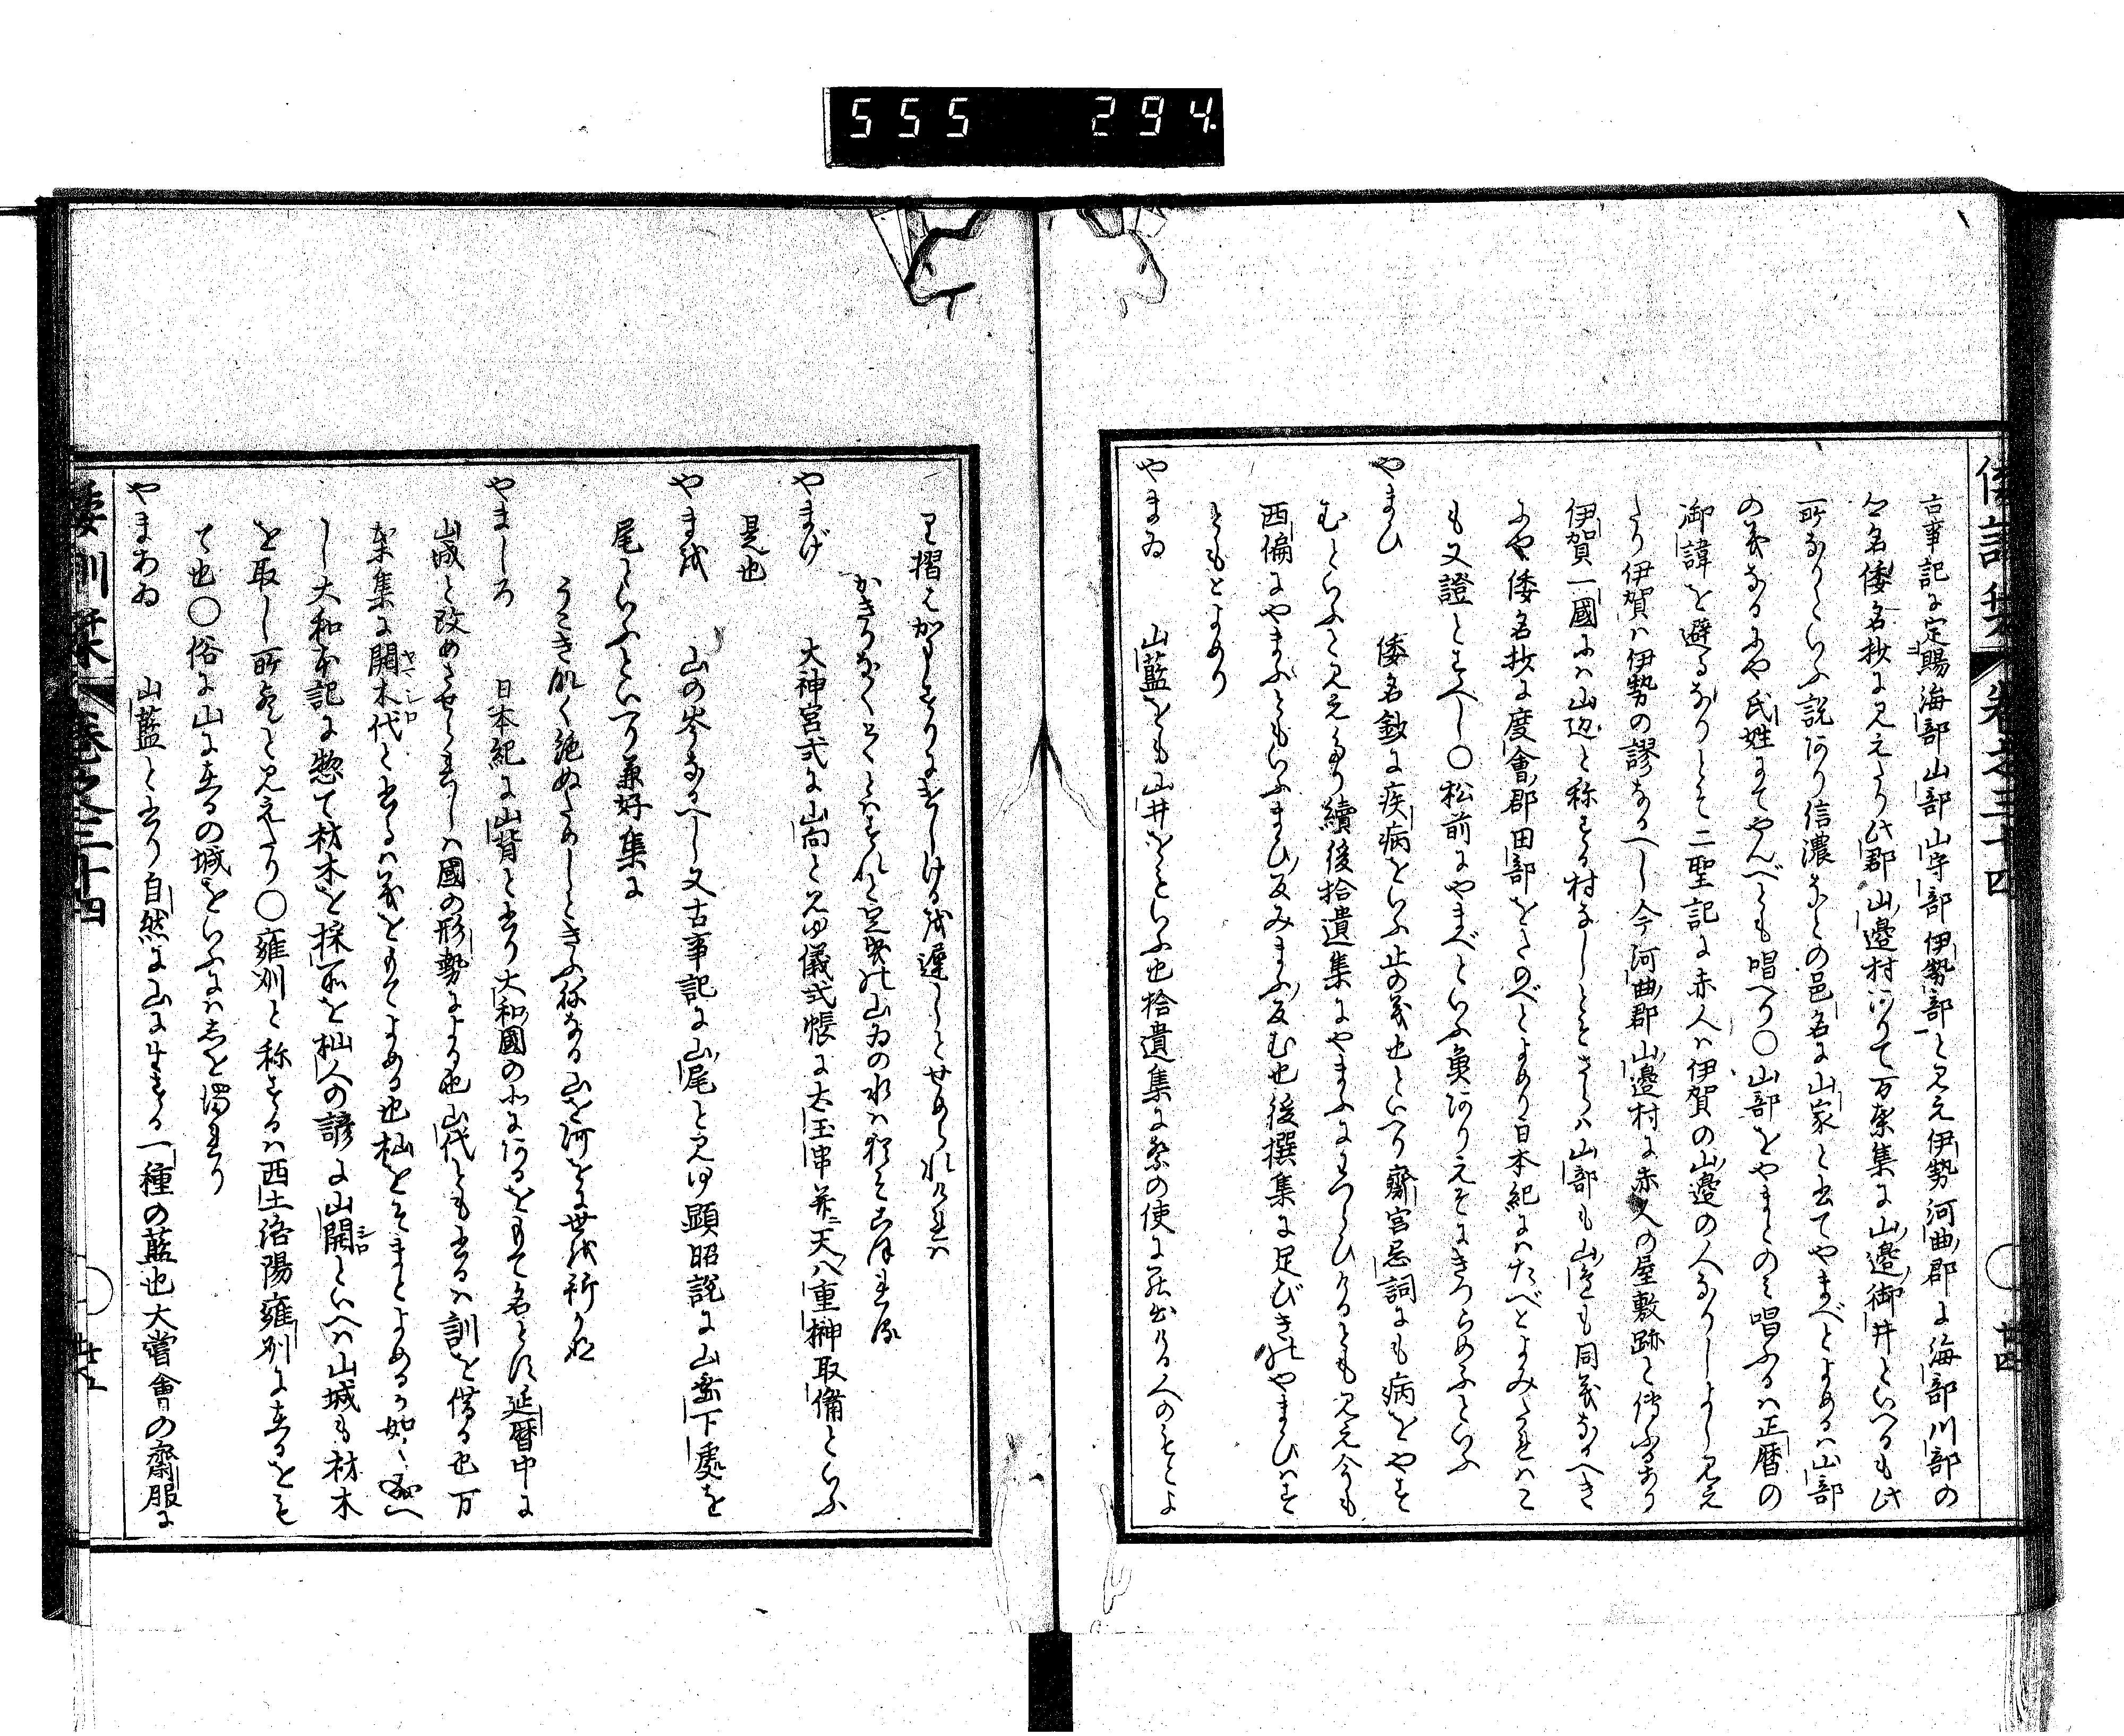 555 294.
古事記に定賜海部山部山守部伊勢部と見え伊勢河曲郡に海部川部の
名倭名抄に見えたり此郡山邊村ありて万葉集に山邊御井といへるも此
所なりといふ説あり信濃なとの邑名に山家と書てやまべとよめるハ山部
の義なるにや氏姓にてやんべとも唱へり〇山部をやまとのミ唱ふるハ正暦の
御諱を避るなりとそ二聖記に赤人ハ伊賀の山邊の人なりしよし見え
たり伊賀ハ伊勢の謬なるへし今河曲郡山邊村に赤人の屋敷跡と傳ふるあり
伊賀一國にハ山辺と称する村なしとそさらハ山部も山邊も同義なるへき
にや倭名抄に度會郡田部をたのべとよめり日本紀にハたべとよみたれハこ
も又證とすへし〇松前にやまべといふ魚ありえぞにきろらめふといふ
やまひ 倭名鈔に疾病をいふ止の義也といへり齋宮忌詞にも病をやす
むといふと見えたり續後拾遺集にやまふにわつらひけるとも見え今も
西偏にやまぶともいふまひ反みまふ反む也後撰集に足びきのやまひハす
ともとよめり
やまゐ 山藍をも山井をもいふ也拾遺集に祭の使にまかり出ける人のもとよ
り摺はかますりにをこしける を遅しとせめられけれハ
かきりなくとくとハすれと足曳の山ゐの水ハ猶そこほれる
やまげ 大神宮式に山向と見ゆ儀式帳に太玉串并天八重榊取備といふ
是也
やまを 山の岑なるへし又古事記に山尾と見ゆ顕昭説に山岳下處を
尾といふといへり兼好集に
うこきなく絶ぬためしときみかなる山を河を世を祈りぬ
やましろ 日本紀に山背と書り大和國の北にあるをもて名とす延暦中に
山城と改めさせられしハ國の形勢による也山代とも書るハ訓を借る也万
葉集に開木代と書るハ義をもてよめる也杣をそまとよめるか如く
し大和本記に惣て材木を採所を杣人の諺に山開といへハ山城も材木
を取し所なと見えたり〇雍州と称するハ西土洛陽雍州に在るをも
て也〇俗に山に在るの城をいふにハしを濁れり
やまあゐ 山藍と書り自然に山に生する一種の藍也大嘗會の齋服に
倭訓栞 巻之三十四